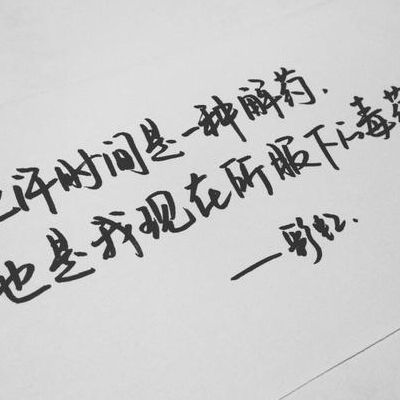 也许时间是一种解药.
也是我现在所服下的毒药
—彩虹.